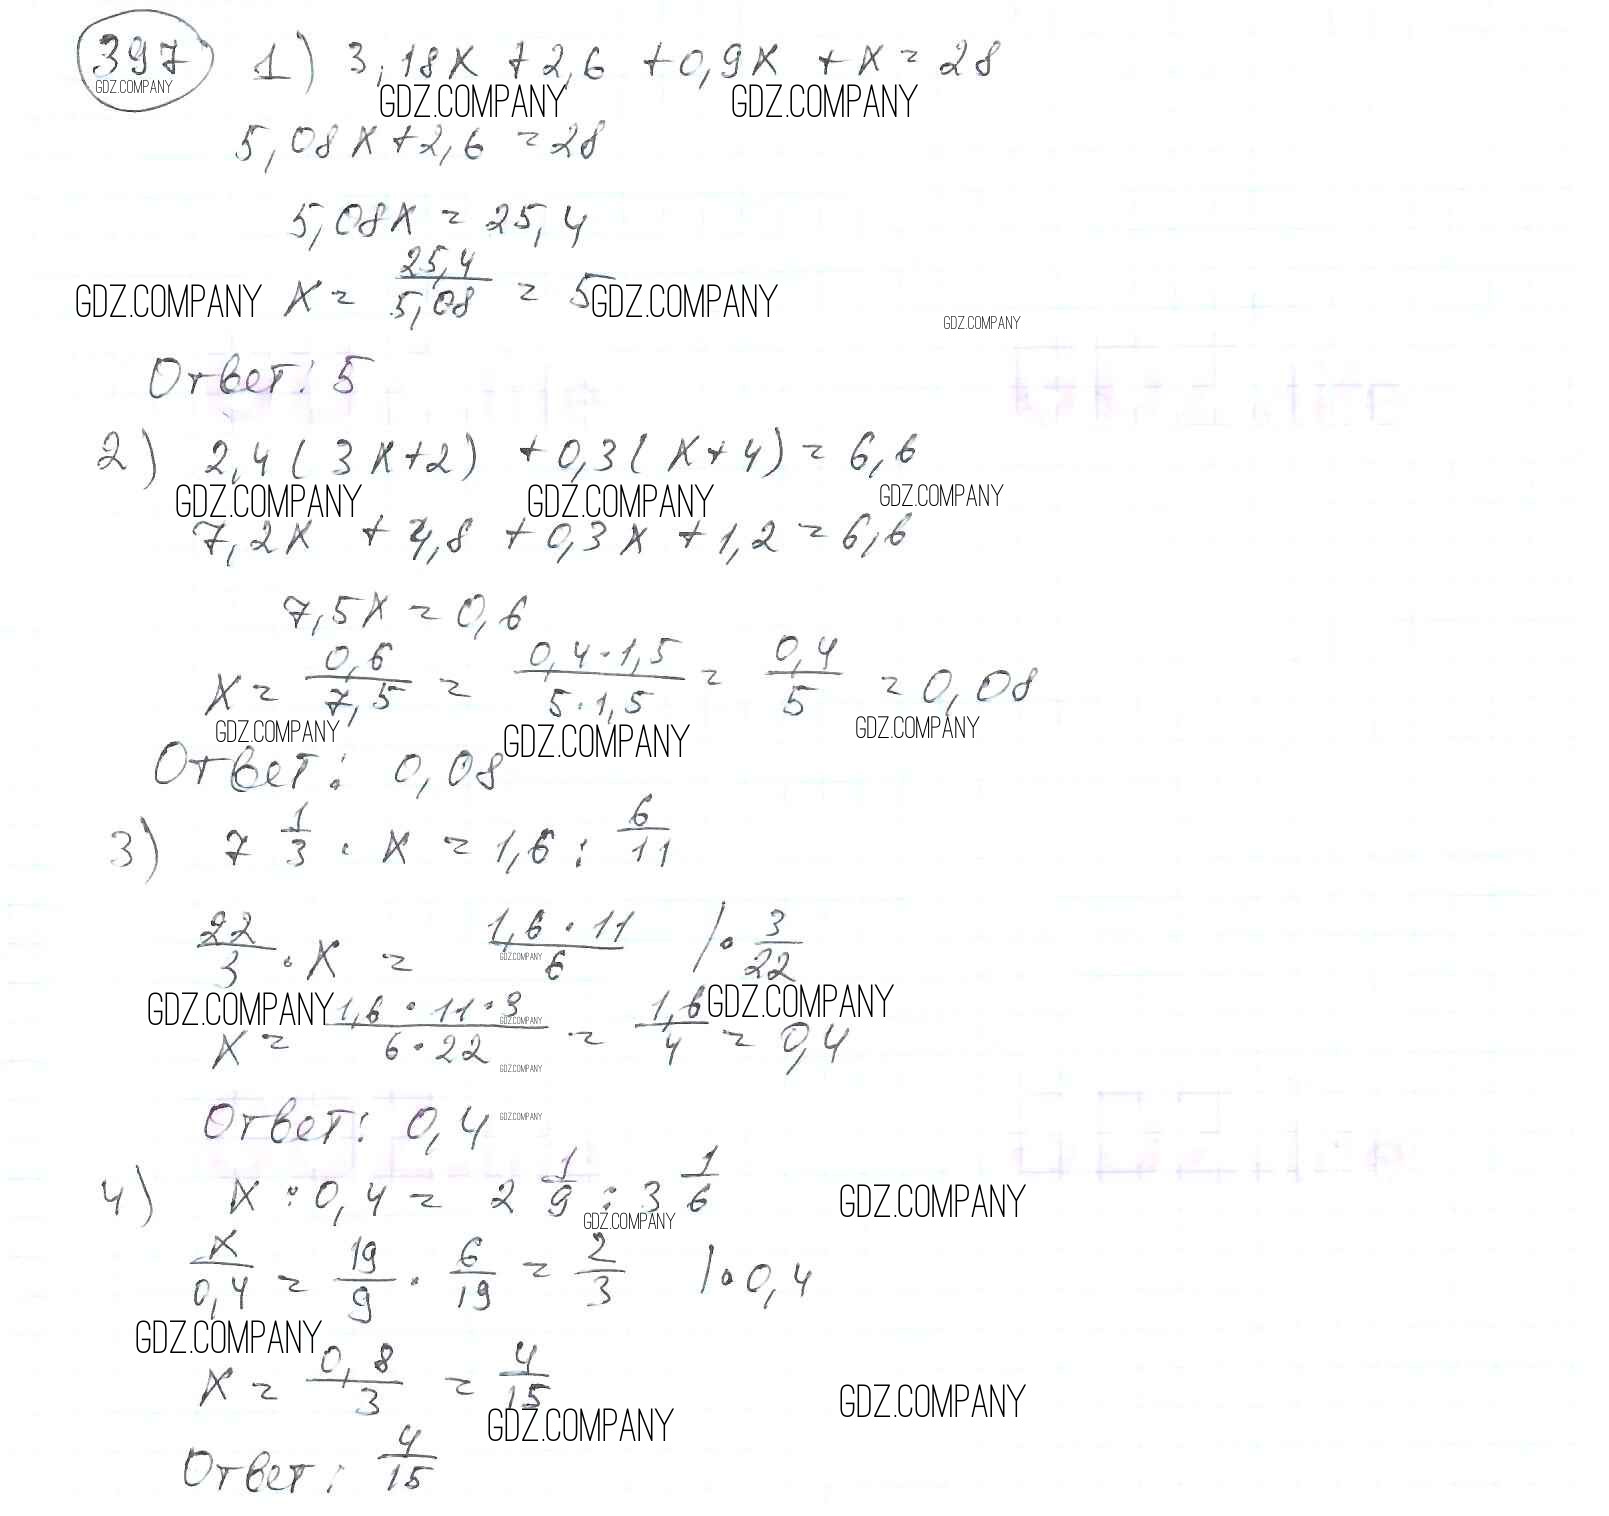 397 1) 3,18x + 2,6 + 0,9x + x = 28
GDZ.COMPANY GDZ.COMPANY GDZ.COMPANY
5,08x + 2,6 = 28
5,08x = 25,4
GDZ.COMPANY x = 25,4/5,08 = 5 GDZ.COMPANY
GDZ.COMPANY
Ответ: 5
2) 2,4(3x+2) + 0,3(x+4) = 6,6
GDZ.COMPANY GDZ.COMPANY GDZ.COMPANY
7,2x + 4,8 + 0,3x + 1,2 = 6,6
7,5x = 0,6
x = 0,6/7,5 = 0,4·1,5/5·1,5 = 0,4/5 = 0,08
GDZ.COMPANY GDZ.COMPANY GDZ.COMPANY
Ответ: 0,08
3) 7 1/3 · x = 1,6 : 6/11
22/3 · x = 1,6·11/6 |· 3/22
GDZ.COMPANY
GDZ.COMPANY GDZ.COMPANY GDZ.COMPANY
x = 1,6·11·3/6·22 = 1,6/4 = 0,4
GDZ.COMPANY
Ответ: 0,4 GDZ.COMPANY
4) x : 0,4 = 2 1/9 : 3 1/6
GDZ.COMPANY GDZ.COMPANY
x/0,4 = 19/9 · 6/19 = 2/3 |· 0,4
GDZ.COMPANY
x = 0,8/3 = 4/15
GDZ.COMPANY GDZ.COMPANY
Ответ: 4/15